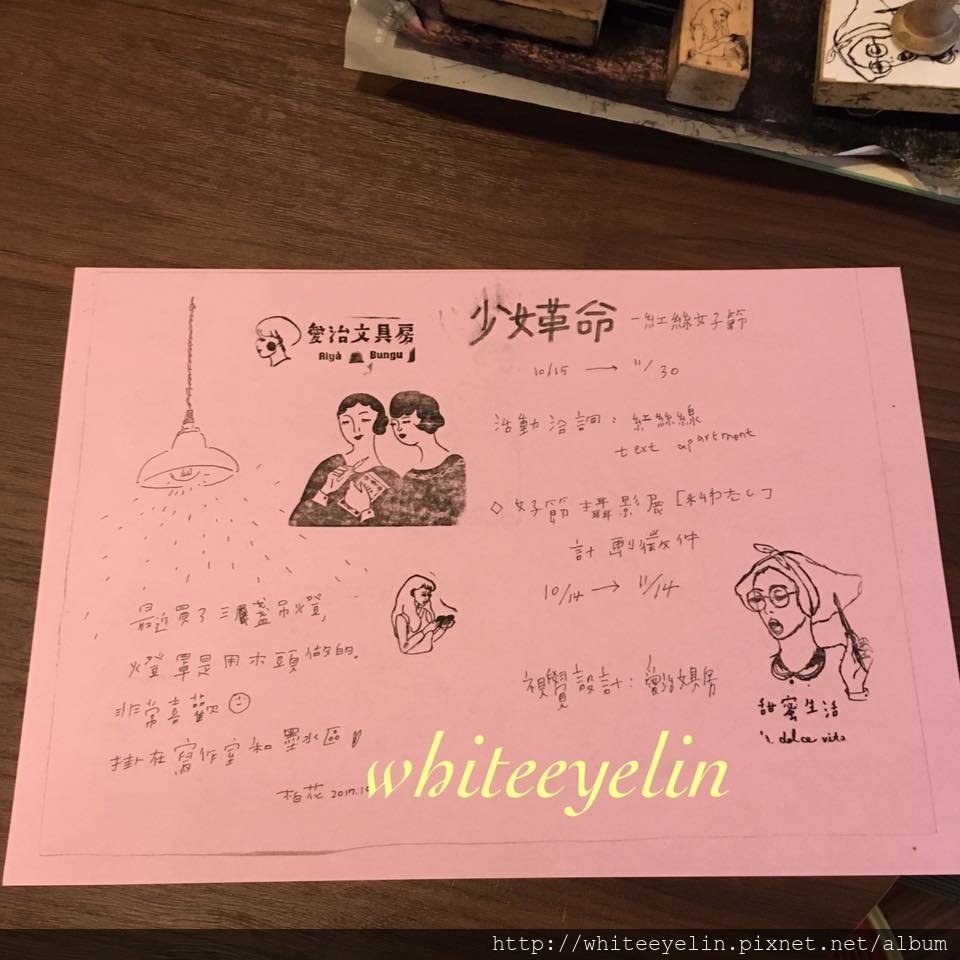 愛治文具房
Aiyà Bungu
少女革命 - 紅絲女子節
10/15 → 11/30
活動洽詢：紅絲線
text apartment
◇女子節攝影展
計劃徵件
10/14 → 11/14
最近買了三盞吊燈,
燈罩是用木頭做的。
非常喜歡
掛在寫作室和墨水區
柏花 2017.10
視覺設計：愛治文具房
甜蜜生活
dolce vita
whiteeyelin
http://whiteeyelin.pixnet.net/album